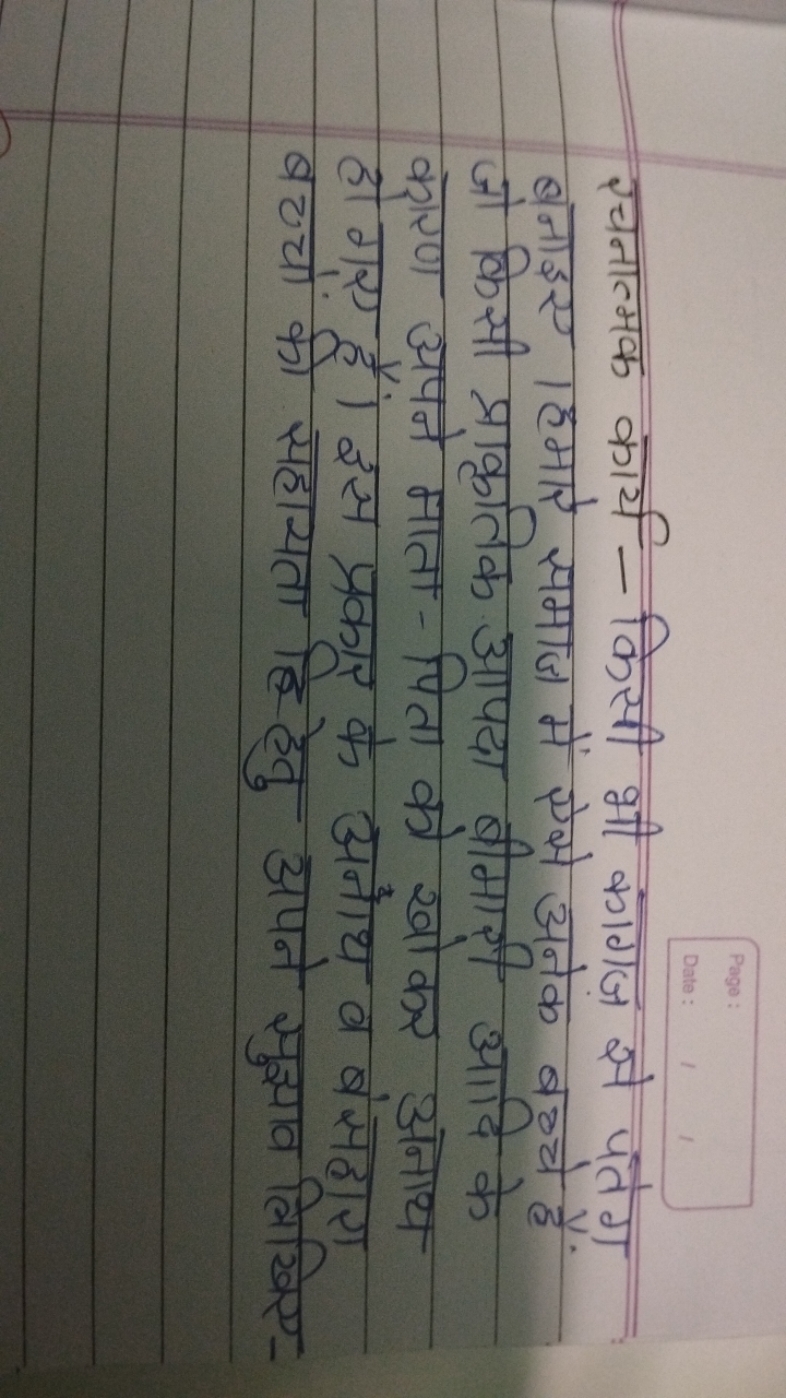 Page :
Date : / /
रचनात्मक कार्य – किसी भी कागज से पतंग
बनाइए । हमारे समाज में ऐसे अनेक बच्चे हैं
जो किसी प्राकृतिक आपदा बीमारी आदि के
कारण अपने माता - पिता को खोकर अनाथ
हो गए हैं। इस प्रकार के अनाथ व बेसहारा
बच्चो की सहायता हेतु अपने सुझाव लिखिए-